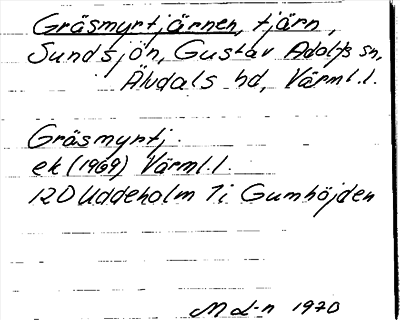 Gräsmyrtjärnen, tjärn,
Sundsjön, Gustav Adolfs sn,
Älvdals hd, Värml.l.
Gräsmyrtj.
ek (1969) Värml.l.
12D Uddeholm 7i Gumhöjden
M d-n 1970